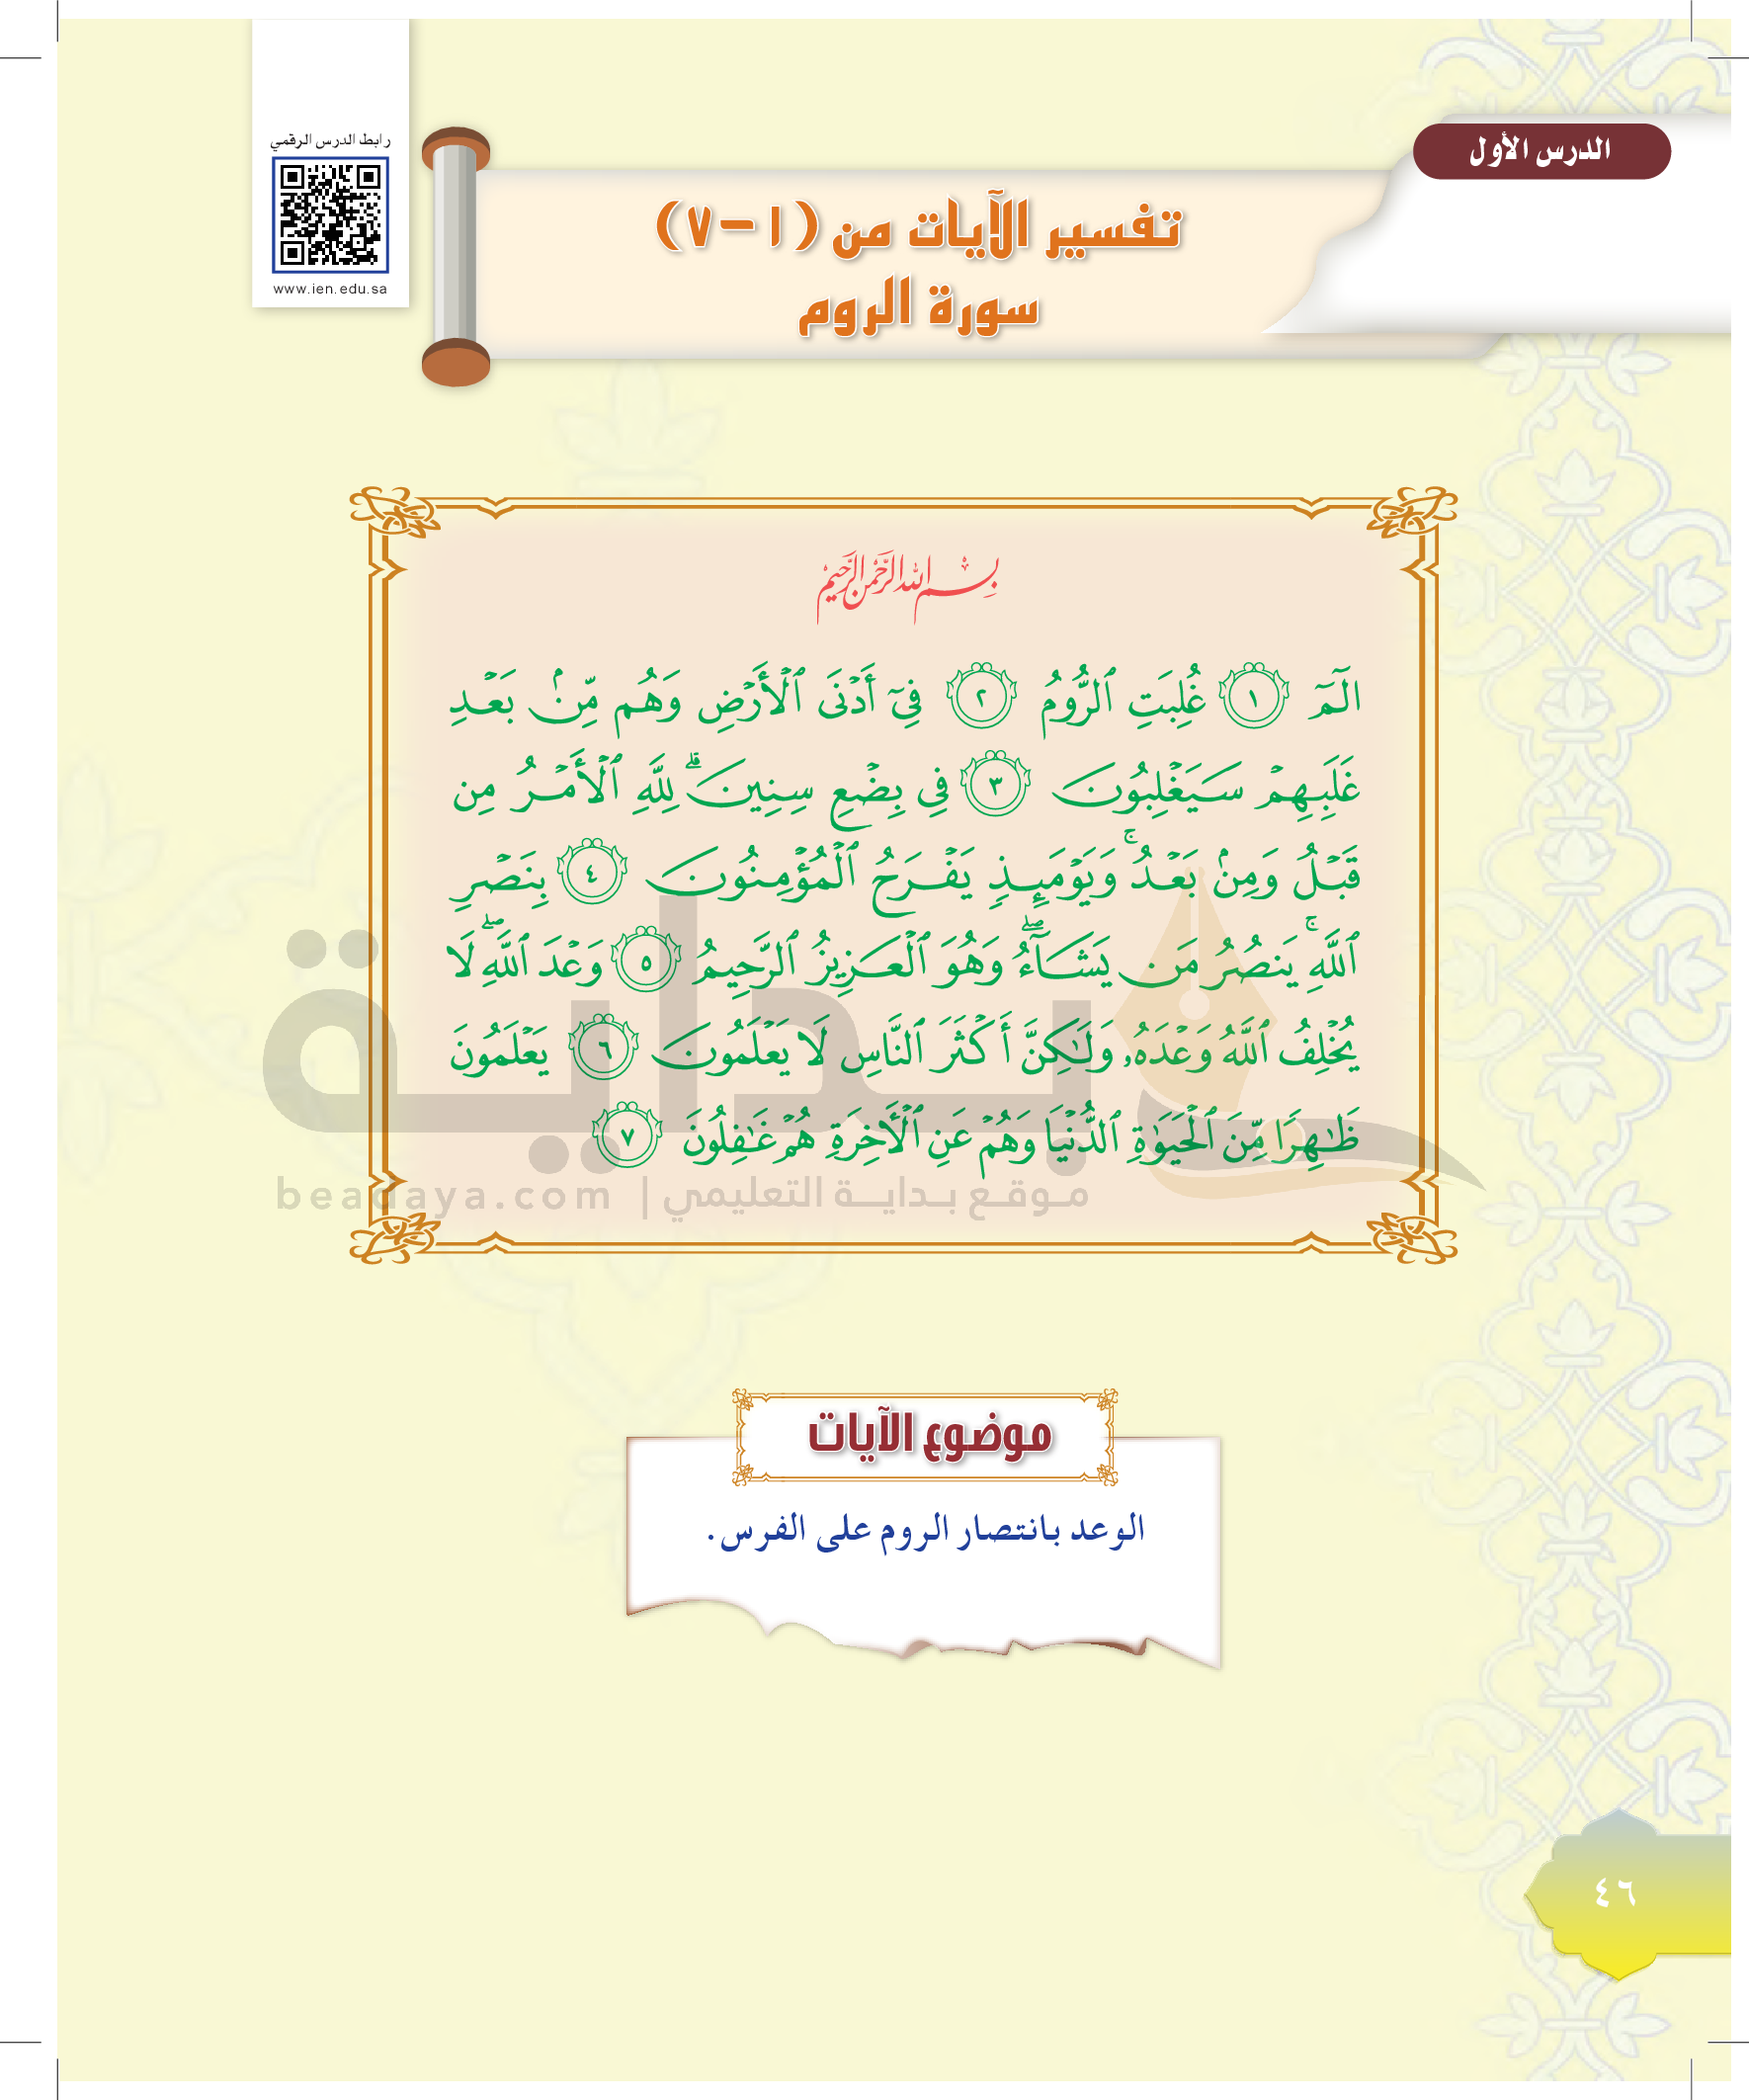 الدرس الأول
رابط الدرس الرقمي
www.ien.edu.sa
تفسير الآيات من (١-٧)
سورة الروم
بِسْمِ اللَّهِ الرَّحْمَنِ الرَّحِيمِ
الٓمٓ ١ غُلِبَتِ ٱلرُّومُ ٢ فِىٓ أَدۡنَى ٱلۡأَرۡضِ وَهُم مِّنۢ بَعۡدِ
غَلَبِهِمۡ سَيَغۡلِبُونَ ٣ فِى بِضۡعِ سِنِينَۗ لِلَّهِ ٱلۡأَمۡرُ مِن
قَبۡلُ وَمِنۢ بَعۡدُۚ وَيَوۡمَئِذٖ يَفۡرَحُ ٱلۡمُؤۡمِنُونَ ٤ بِنَصۡرِ
ٱللَّهِۚ يَنصُرُ مَن يَشَآءُۖ وَهُوَ ٱلۡعَزِيزُ ٱلرَّحِيمُ ٥ وَعۡدَ ٱللَّهِۖ لَا
يُخۡلِفُ ٱللَّهُ وَعۡدَهُۥ وَلَٰكِنَّ أَكۡثَرَ ٱلنَّاسِ لَا يَعۡلَمُونَ ٦ يَعۡلَمُونَ
ظَٰهِرٗا مِّنَ ٱلۡحَيَوٰةِ ٱلدُّنۡيَا وَهُمۡ عَنِ ٱلۡأٓخِرَةِ هُمۡ غَٰفِلُونَ ٧
بداية
موقع بداية التعليمي | beadaya.com
موضوع الآيات
الوعد بانتصار الروم على الفرس.
٤٦